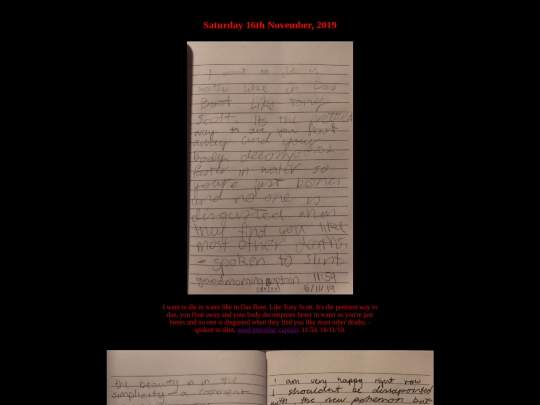 Saturday 16th November, 2019
I want to die in
water like in Das
Boot like Tony
Scott. Its the
way to die, you float
away and your
body decomposes
faster in water so
you're just bones
and no one is
disgusted when
they find you like
most other deaths.
- spoken to slint
goodmorning captain 11:59
16/11/19
I want to die in water like in Das Boot. Like Tony Scott. It's the prettiest way to
die, you float away and your body decomposes faster in water so you're just
bones and no one is disgusted when they find you like most other deaths. -
spoken to slint, good morning, captain. 11:59, 16/11/19.
the beauty is in the
simplicity - a comment
I am very happy right now
I shouldnt be dissapointed
with the new pokemon but